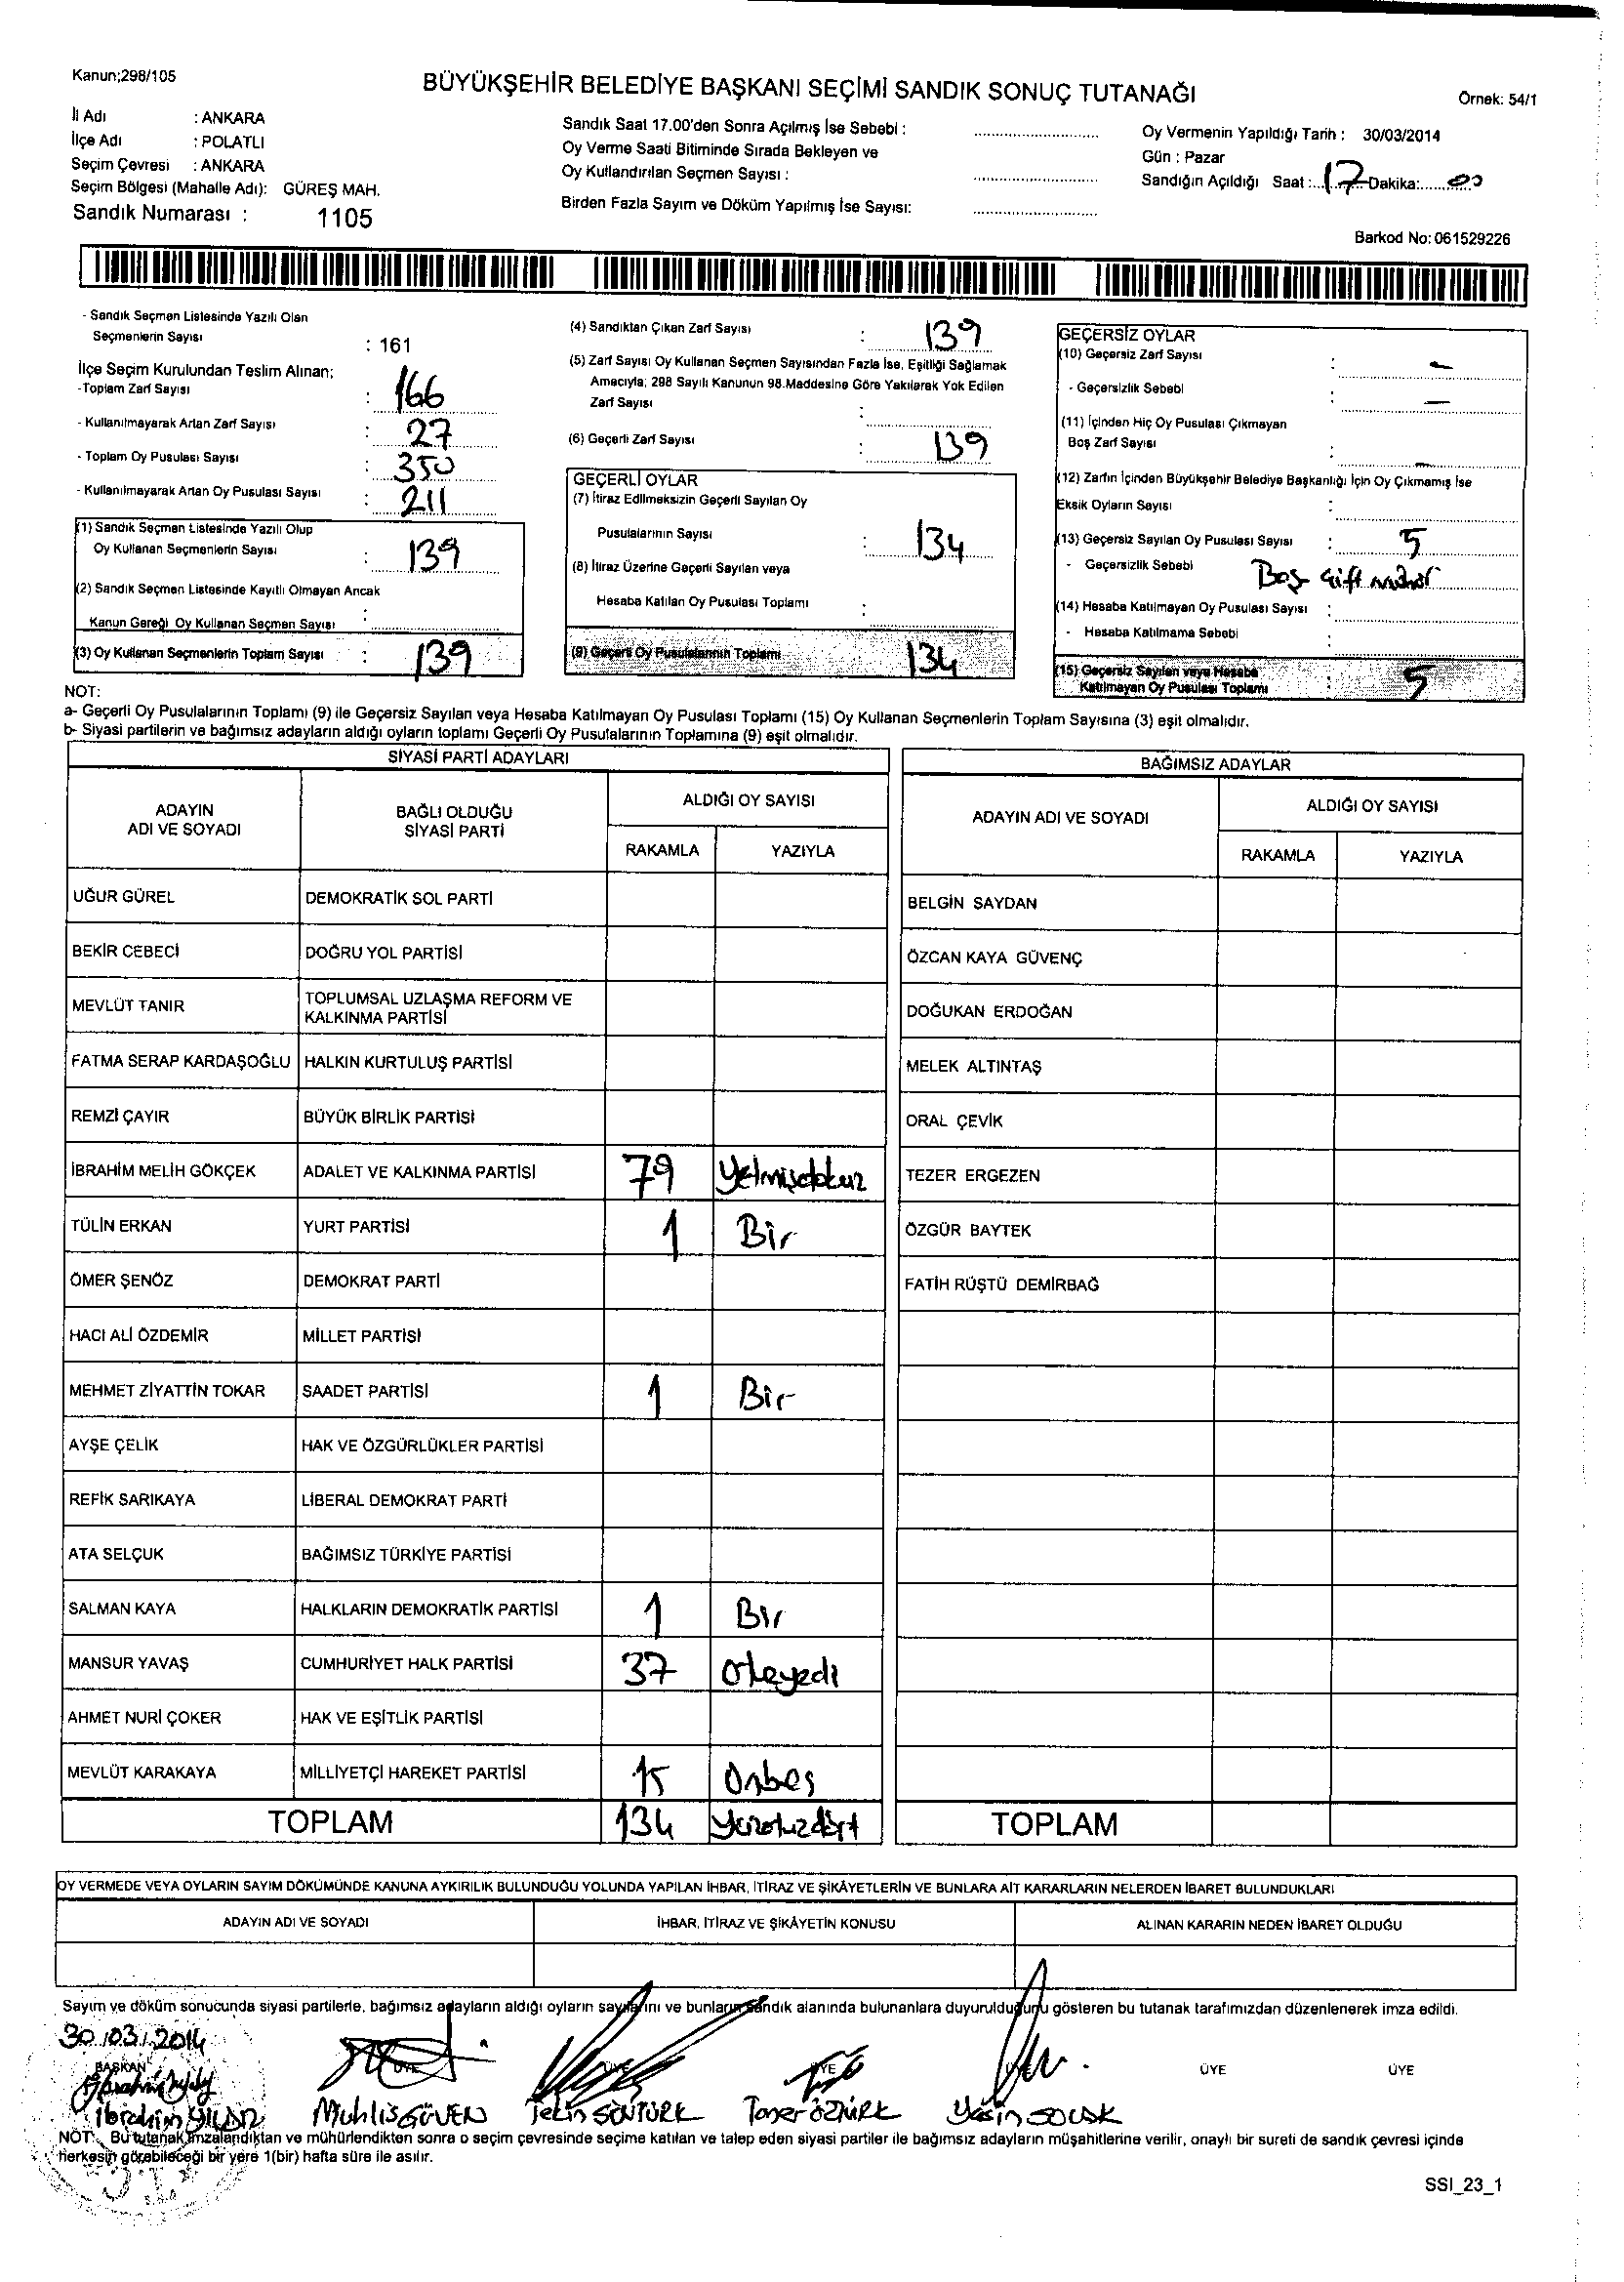 Kanun;298/105
BÜYÜKŞEHİR BELEDİYE BAŞKANI SEÇİMİ SANDIK SONUÇ TUTANAĞI
Örnek: 54/1
İl Adı : ANKARA
İlçe Adı : POLATLI
Seçim Çevresi : ANKARA
Seçim Bölgesi (Mahalle Adı): GÜREŞ MAH.
Sandık Numarası : 1105
Sandık Saat 17.00'den Sonra Açılmış İse Sebebi :
Oy Verme Saati Bitiminde Sırada Bekleyen ve
Oy Kullandırılan Seçmen Sayısı :
Birden Fazla Sayım ve Döküm Yapılmış İse Sayısı:
Oy Vermenin Yapıldığı Tarih : 30/03/2014
Gün : Pazar
Sandığın Açıldığı Saat : 17 Dakika: 00
Barkod No: 061529226
- Sandık Seçmen Listesinde Yazılı Olan
Seçmenlerin Sayısı : 161
İlçe Seçim Kurulundan Teslim Alınan;
-Toplam Zarf Sayısı : 166
- Kullanılmayarak Artan Zarf Sayısı : 27
- Toplam Oy Pusulası Sayısı : 350
- Kullanılmayarak Artan Oy Pusulası Sayısı : 211
(1) Sandık Seçmen Listesinde Yazılı Olup
Oy Kullanan Seçmenlerin Sayısı : 139
(2) Sandık Seçmen Listesinde Kayıtlı Olmayan Ancak
Kanun Gereği Oy Kullanan Seçmen Sayısı :
(3) Oy Kullanan Seçmenlerin Toplam Sayısı : 139
(4) Sandıktan Çıkan Zarf Sayısı : 139
(5) Zarf Sayısı Oy Kullanan Seçmen Sayısından Fazla İse, Eşitliği Sağlamak
Amacıyla; 298 Sayılı Kanunun 98.Maddesine Göre Yakılarak Yok Edilen
Zarf Sayısı :
(6) Geçerli Zarf Sayısı : 139
GEÇERLİ OYLAR
(7) İtiraz Edilmeksizin Geçerli Sayılan Oy
Pusulalarının Sayısı : 134
(8) İtiraz Üzerine Geçerli Sayılan veya
Hesaba Katılan Oy Pusulası Toplamı :
(9) Geçerli Oy Pusulalarının Toplamı 134
GEÇERSİZ OYLAR
(10) Geçersiz Zarf Sayısı : –
- Geçersizlik Sebebi : –
(11) İçinden Hiç Oy Pusulası Çıkmayan
Boş Zarf Sayısı : –
(12) Zarfın İçinden Büyükşehir Belediye Başkanlığı İçin Oy Çıkmamış İse
Eksik Oyların Sayısı :
(13) Geçersiz Sayılan Oy Pusulası Sayısı : 5
- Geçersizlik Sebebi Boş Çift mühür
(14) Hesaba Katılmayan Oy Pusulası Sayısı :
- Hesaba Katılmama Sebebi :
(15) Geçersiz Sayılan veya Hesaba
Katılmayan Oy Pusulası Toplamı : 5
NOT:
a- Geçerli Oy Pusulalarının Toplamı (9) ile Geçersiz Sayılan veya Hesaba Katılmayan Oy Pusulası Toplamı (15) Oy Kullanan Seçmenlerin Toplam Sayısına (3) eşit olmalıdır.
b- Siyasi partilerin ve bağımsız adayların aldığı oyların toplamı Geçerli Oy Pusulalarının Toplamına (9) eşit olmalıdır.
SİYASİ PARTİ ADAYLARI
ADAYIN ADI VE SOYADI BAĞLI OLDUĞU SİYASİ PARTİ ALDIĞI OY SAYISI
RAKAMLA YAZIYLA
UĞUR GÜREL DEMOKRATİK SOL PARTİ
BEKİR CEBECİ DOĞRU YOL PARTİSİ
MEVLÜT TANIR TOPLUMSAL UZLAŞMA REFORM VE KALKINMA PARTİSİ
FATMA SERAP KARDAŞOĞLU HALKIN KURTULUŞ PARTİSİ
REMZİ ÇAYIR BÜYÜK BİRLİK PARTİSİ
İBRAHİM MELİH GÖKÇEK ADALET VE KALKINMA PARTİSİ 79 Yetmişdokuz
TÜLİN ERKAN YURT PARTİSİ 1 Bir
ÖMER ŞENÖZ DEMOKRAT PARTİ
HACI ALİ ÖZDEMİR MİLLET PARTİSİ
MEHMET ZİYATTİN TOKAR SAADET PARTİSİ 1 Bir
AYŞE ÇELİK HAK VE ÖZGÜRLÜKLER PARTİSİ
REFİK SARIKAYA LİBERAL DEMOKRAT PARTİ
ATA SELÇUK BAĞIMSIZ TÜRKİYE PARTİSİ
SALMAN KAYA HALKLARIN DEMOKRATİK PARTİSİ 1 Bir
MANSUR YAVAŞ CUMHURİYET HALK PARTİSİ 37 Otuzyedi
AHMET NURİ ÇOKER HAK VE EŞİTLİK PARTİSİ
MEVLÜT KARAKAYA MİLLİYETÇİ HAREKET PARTİSİ 15 Onbeş
TOPLAM 134 Yüzotuzdört
BAĞIMSIZ ADAYLAR
ADAYIN ADI VE SOYADI ALDIĞI OY SAYISI
RAKAMLA YAZIYLA
BELGİN SAYDAN
ÖZCAN KAYA GÜVENÇ
DOĞUKAN ERDOĞAN
MELEK ALTINTAŞ
ORAL ÇEVİK
TEZER ERGEZEN
ÖZGÜR BAYTEK
FATİH RÜŞTÜ DEMİRBAĞ
TOPLAM
OY VERMEDE VEYA OYLARIN SAYIM DÖKÜMÜNDE KANUNA AYKIRILIK BULUNDUĞU YOLUNDA YAPILAN İHBAR, İTİRAZ VE ŞİKÂYETLERİN VE BUNLARA AİT KARARLARIN NELERDEN İBARET BULUNDUKLARI
ADAYIN ADI VE SOYADI İHBAR, İTİRAZ VE ŞİKÂYETİN KONUSU ALINAN KARARIN NEDEN İBARET OLDUĞU
Sayım ve döküm sonucunda siyasi partilerle, bağımsız adayların aldığı oyların sayılarını ve bunların sandık alanında bulunanlara duyurulduğunu gösteren bu tutanak tarafımızdan düzenlenerek imza edildi.
30/03/2014
BAŞKAN ÜYE ÜYE ÜYE ÜYE ÜYE ÜYE
İbrahim Muhlis GÜVEN Tekin SENTÜRK Taner ÖZTÜRK Yasin
NOT: Bu tutanak imzalandıktan ve mühürlendikten sonra o seçim çevresinde seçime katılan ve talep eden siyasi partiler ile bağımsız adayların müşahitlerine verilir, onaylı bir sureti de sandık çevresi içinde
herkesin görebileceği bir yere 1(bir) hafta süre ile asılır.
SSI_23_1